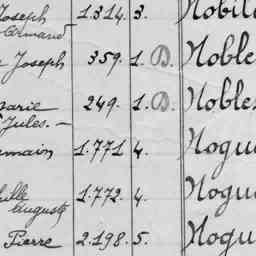 Joseph 1.314. 3. Nobil
Armand
Joseph 359. 1. B. Noble
Marie 249. 1. B. Nobles
Jules. —
1.771 4. Nogu
1.772. 4. Nogu
Auguste
Pierre 2.198. 5. Nogu